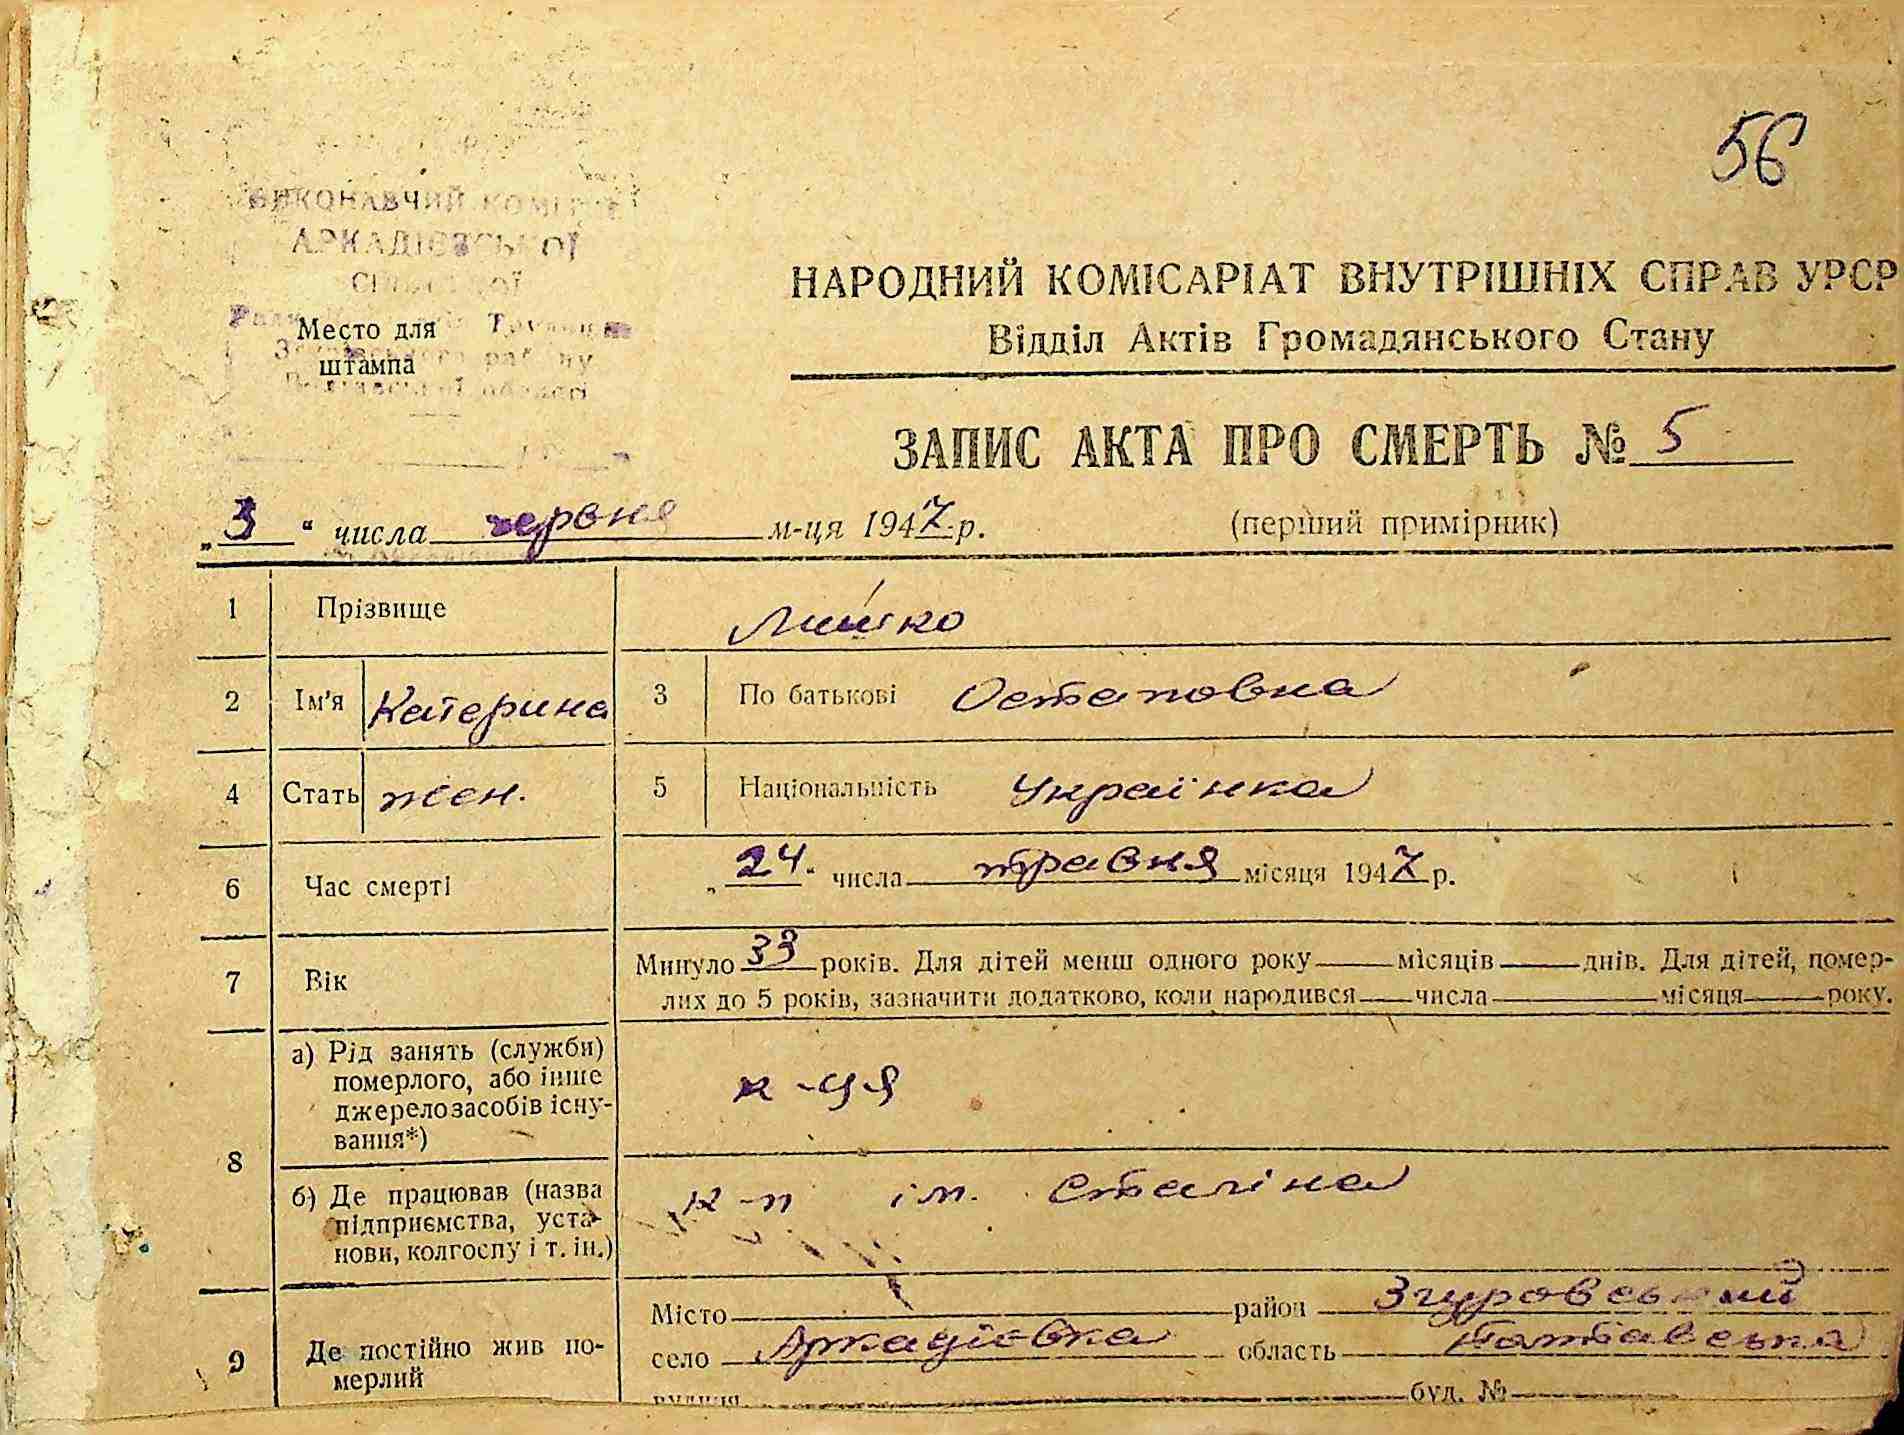 56
ВИКОНАВЧИЙ КОМІТЕТ
АРКАДІЄВСЬКОЇ
СІЛЬСЬКОЇ
НАРОДНИЙ КОМІСАРІАТ ВНУТРІШНІХ СПРАВ УРСР
Відділ Актів Громадянського Стану
Место для
штампа
району
області
ЗАПИС АКТА ПРО СМЕРТЬ № 5
„3“ числа червня м-ця 1947 р.
(перший примірник)
1 Прізвище Мишко
2 Ім'я Катерина 3 По батькові Остаповна
4 Стать жен. 5 Національність Українка
6 Час смерті „24“ числа травня місяця 1947 р.
7 Вік Минуло 33 років. Для дітей менш одного року — місяців — днів. Для дітей, помер-
лих до 5 років, зазначити додатково, коли народився — числа — місяця — року.
8 а) Рід занять (служби)
померлого, або інше
джерело засобів існу-
вання*)
к-ця
б) Де працював (назва
підприємства, уста-
нови, колгоспу і т. ін.)
к-п ім. Сталіна
9 Де постійно жив по-
мерлий
Місто район Згуровський
село Аркадієвка область Полтавська
буд. №